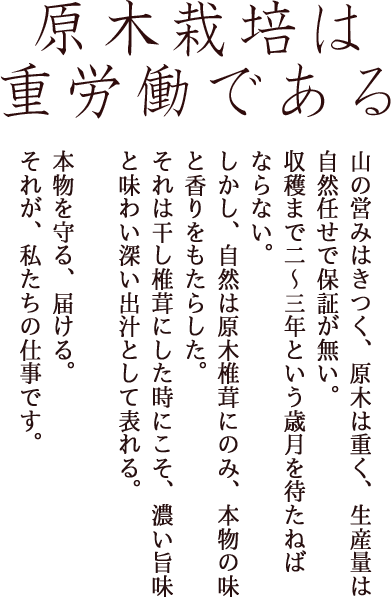 原木栽培は
重労働である
山の営みはきつく、原木は重く、生産量は
自然任せで保証が無い。
収穫まで二〜三年という歳月を待たねば
ならない。
しかし、自然は原木椎茸にのみ、本物の味
と香りをもたらした。
それは干し椎茸にした時にこそ、濃い旨味
と味わい深い出汁として表れる。
本物を守る、届ける。
それが、私たちの仕事です。